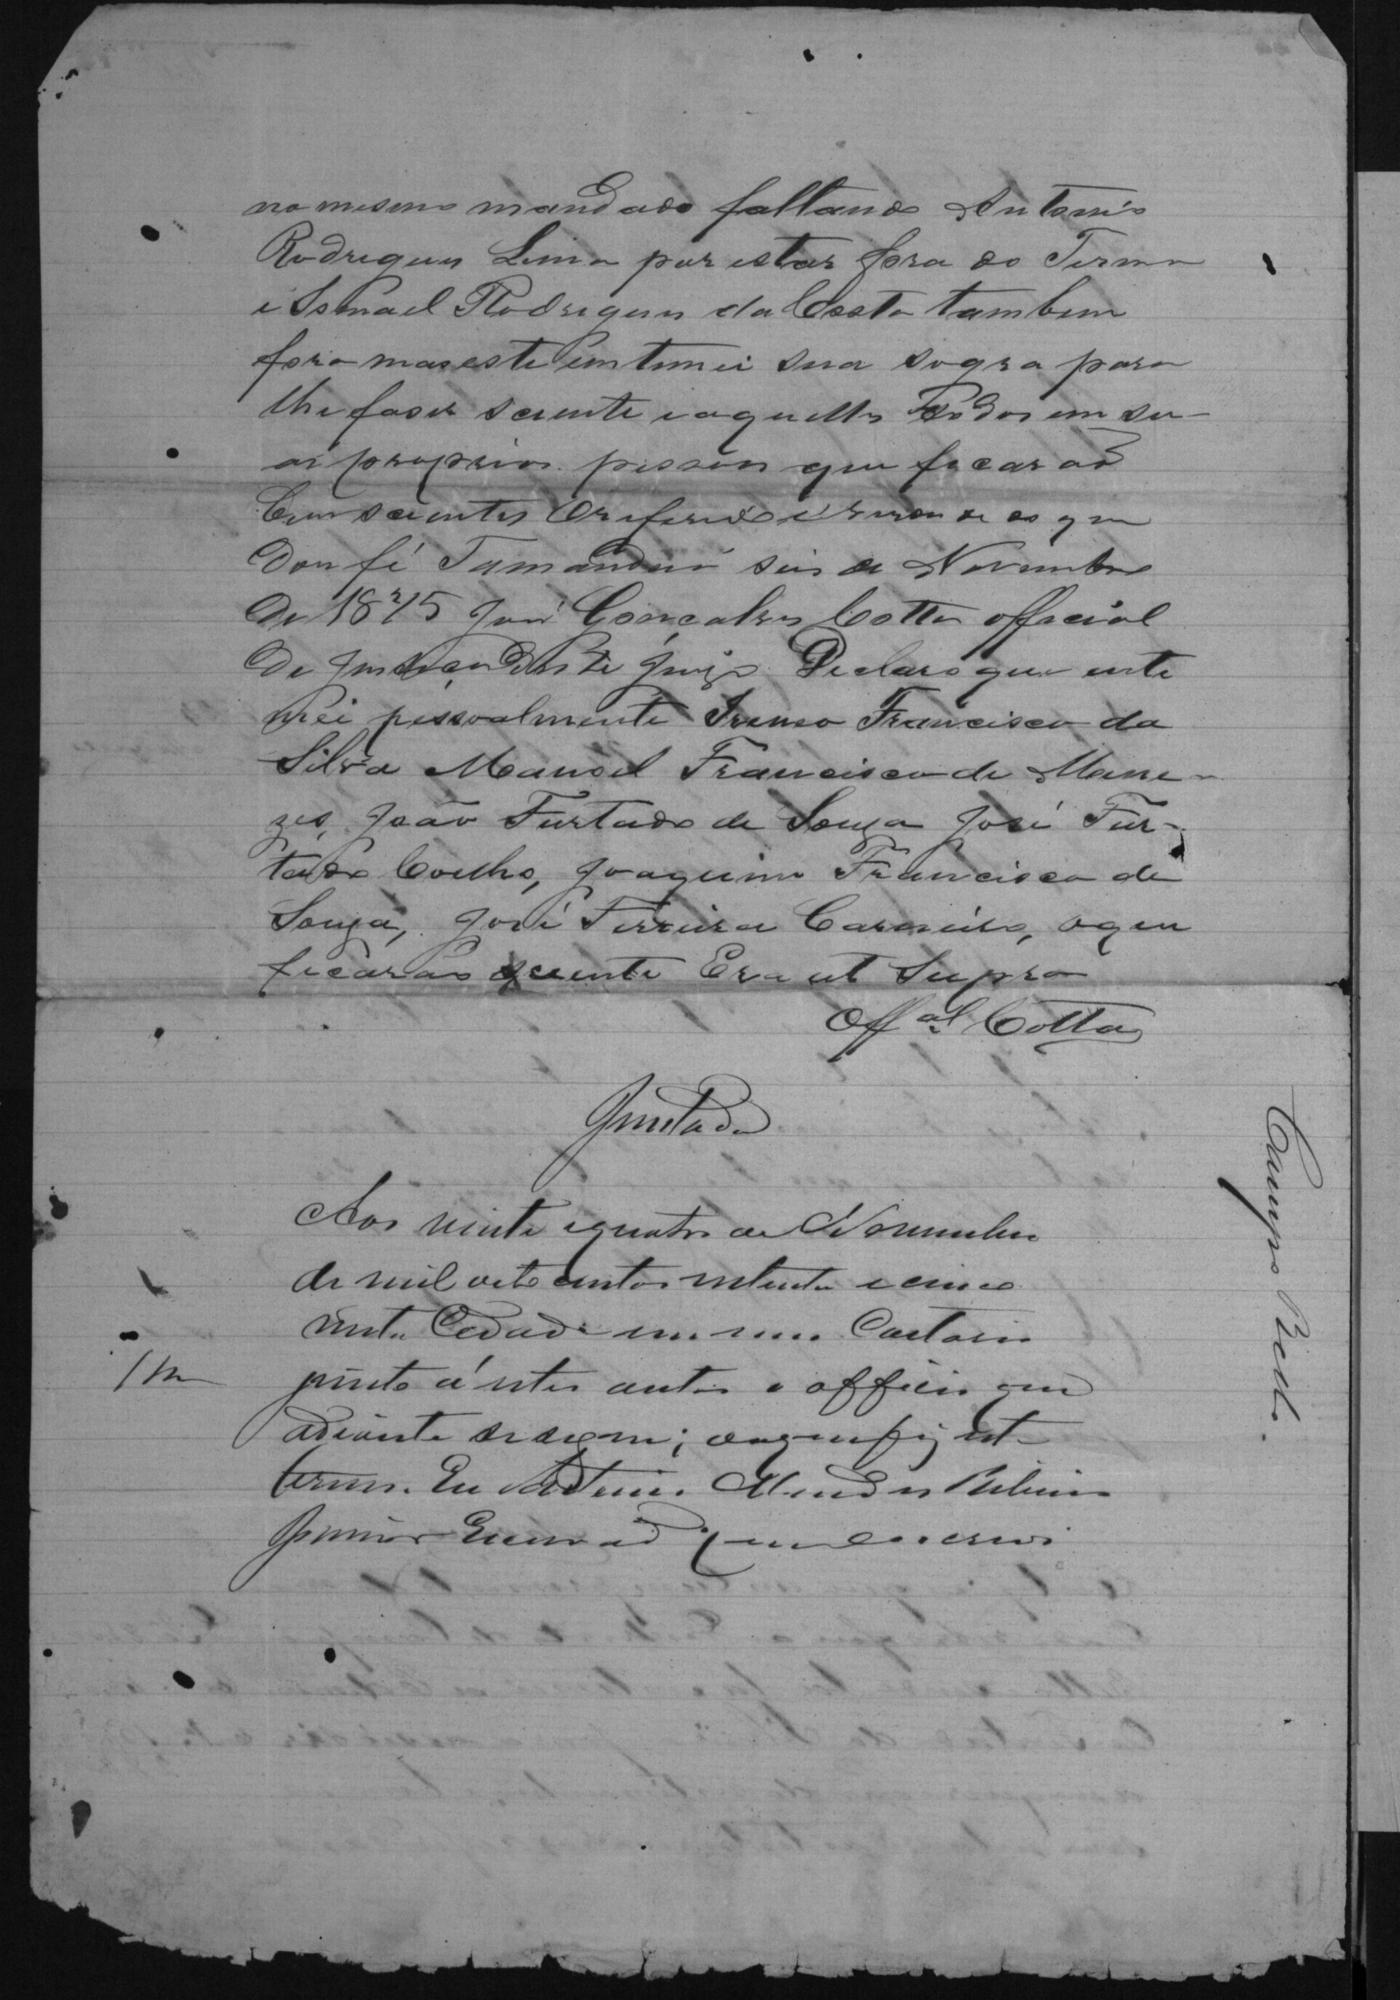 no mesmo mandado faltando Antonio
Rodrigues Lima por estar fora do Termo
e Ismael Rodrigues da Costa tambem
fora mas este entemei sua sogra para
lhe faser sciente e aquelles todos em su-
as proprias pessoas que ficarão
bem scientes O referido é verdade do que
dou fé Tamanduá seis de Novembro
de 1875 José Gonçalves Cotta official
de Justiça deste Juizo Declaro que ente
mei pessoalmente Irineo Francisco da
Silva Manoel Francisco de Mene-
zes, João Furtado de Souza José Fur-
tado Coelho, Joaquim Francisco de
Souza, José Ferreira Carneiro, o que
ficarão sciente Era ut Supra
Off.al Cotta
Juntada
Aos vinte e quatro de Novembro
de mil oito centos setenta e cinco
nesta Cidade em meu Cartorio
junto á estes autos o officio que
adiante se segue; do que fiz este
termo. Eu Antonio Mendes Ribeiro
Junior Escrivão que o escrevi
Campo Bello.